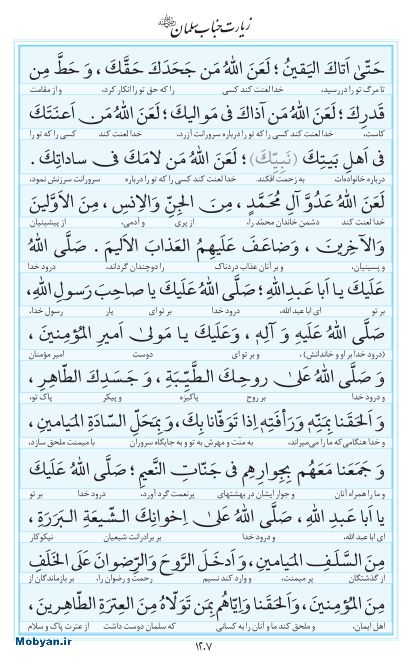 زیارت جناب سلمان
حَتّیٰ اَتاكَ الیَقینُ ؛ لَعَنَ اللهُ مَن جَحَدَكَ حَقَّكَ ، وَ حَطَّ مِن
تا مرگ تو را دررسید، خدا لعنت کند کسی را که حق تو را انکار کرد، و از مقامت
قَدرِكَ ؛ لَعَنَ اللهُ مَن آذاكَ فی مَوالیكَ ؛ لَعَنَ اللهُ مَن اَعنَتَكَ
کاست، خدا لعنت کند کسی را که تو را درباره سرورانت آزرد، خدا لعنت کند کسی که تو را
فی اَهلِ بَیتِكَ (نَبِیِّكَ) ؛ لَعَنَ اللهُ مَن لامَكَ فی ساداتِكَ .
درباره خانواده‌ات به زحمت افکند. خدا لعنت کند کسی را که تو را درباره سرورانت سرزنش نمود،
لَعَنَ اللهُ عَدُوَّ آلِ مُحَمَّدٍ ، مِنَ الجِنِّ وَالاِنسِ ، مِنَ الاَوَّلینَ
خدا لعنت کند دشمن خاندان محمد را، از پری و آدمی، از پیشینیان
وَالآخِرینَ ، وَضاعَفَ عَلَیهِمُ العَذابَ الاَلیمَ . صَلَّی اللهُ
و پسینیان، و بر آنان عذاب دردناک را دوچندان گرداند، درود خدا
عَلَیكَ یا اَبا عَبدِاللهِ ؛ صَلَّی اللهُ عَلَیكَ یا صاحِبَ رَسولِ اللهِ،
بر تو ای ابا عبدالله، درود خدا بر تو ای یار رسول خدا،
صَلَّی اللهُ عَلَیهِ وَ آلِهِ، وَعَلَیكَ یا مَولیٰ اَمیرِ المُؤمِنینَ ،
(درود خدا بر او و خاندانش)، و بر تو ای دوست امیر مؤمنان
وَ صَلَّی اللهُ عَلیٰ روحِكَ الطَّیِّبَةِ ، وَ جَسَدِكَ الطّاهِرِ ،
و درود خدا بر روح پاکیزه و پیکر پاک تو،
وَ اَلحَقَنا بِمَنِّهِ وَرَأفَتِهِ اِذا تَوَفّانا بِكَ، وَبِمَحَلِّ السّادَةِ المَیامینِ ،
و خدا هنگامی که ما را می‌میراند، به منت و مهرش به تو و به جایگاه سروران با میمنت ملحق سازد،
وَ جَمَعَنا مَعَهُم بِجِوارِهِم فی جَنّاتِ النَّعیمِ ؛ صَلَّی اللهُ عَلَیكَ
و ما را همراه آنان و جوار ایشان در بهشتهای پرنعمت گرد آورد، درود خدا بر تو
یا اَبا عَبدِ اللهِ ، صَلَّی اللهُ عَلیٰ اِخوانِكَ الشّیعَةِ البَرَرَةِ ،
ای ابا عبدالله، و درود خدا بر برادرانت شیعیان نیکوکار
مِنَ السَّلَفِ المَیامینِ، وَاَدخَلَ الرَّوحَ وَالرِّضوانَ عَلَی الخَلَفِ
از گذشتگان پر میمنت، و وارد کند نسیم رحمت و رضوان را، بر بازماندگان از
مِنَ المُؤمِنینَ، وَاَلحَقَنا وَاِیّاهُم بِمَن تَوَلّاهُ مِنَ العِترَةِ الطّاهِرینَ،
اهل ایمان، و ملحق کند ما و آنان را به کسانی که سلمان دوست داشت از عترت پاک و سلام
۱۲۰۷
Mobyan.ir